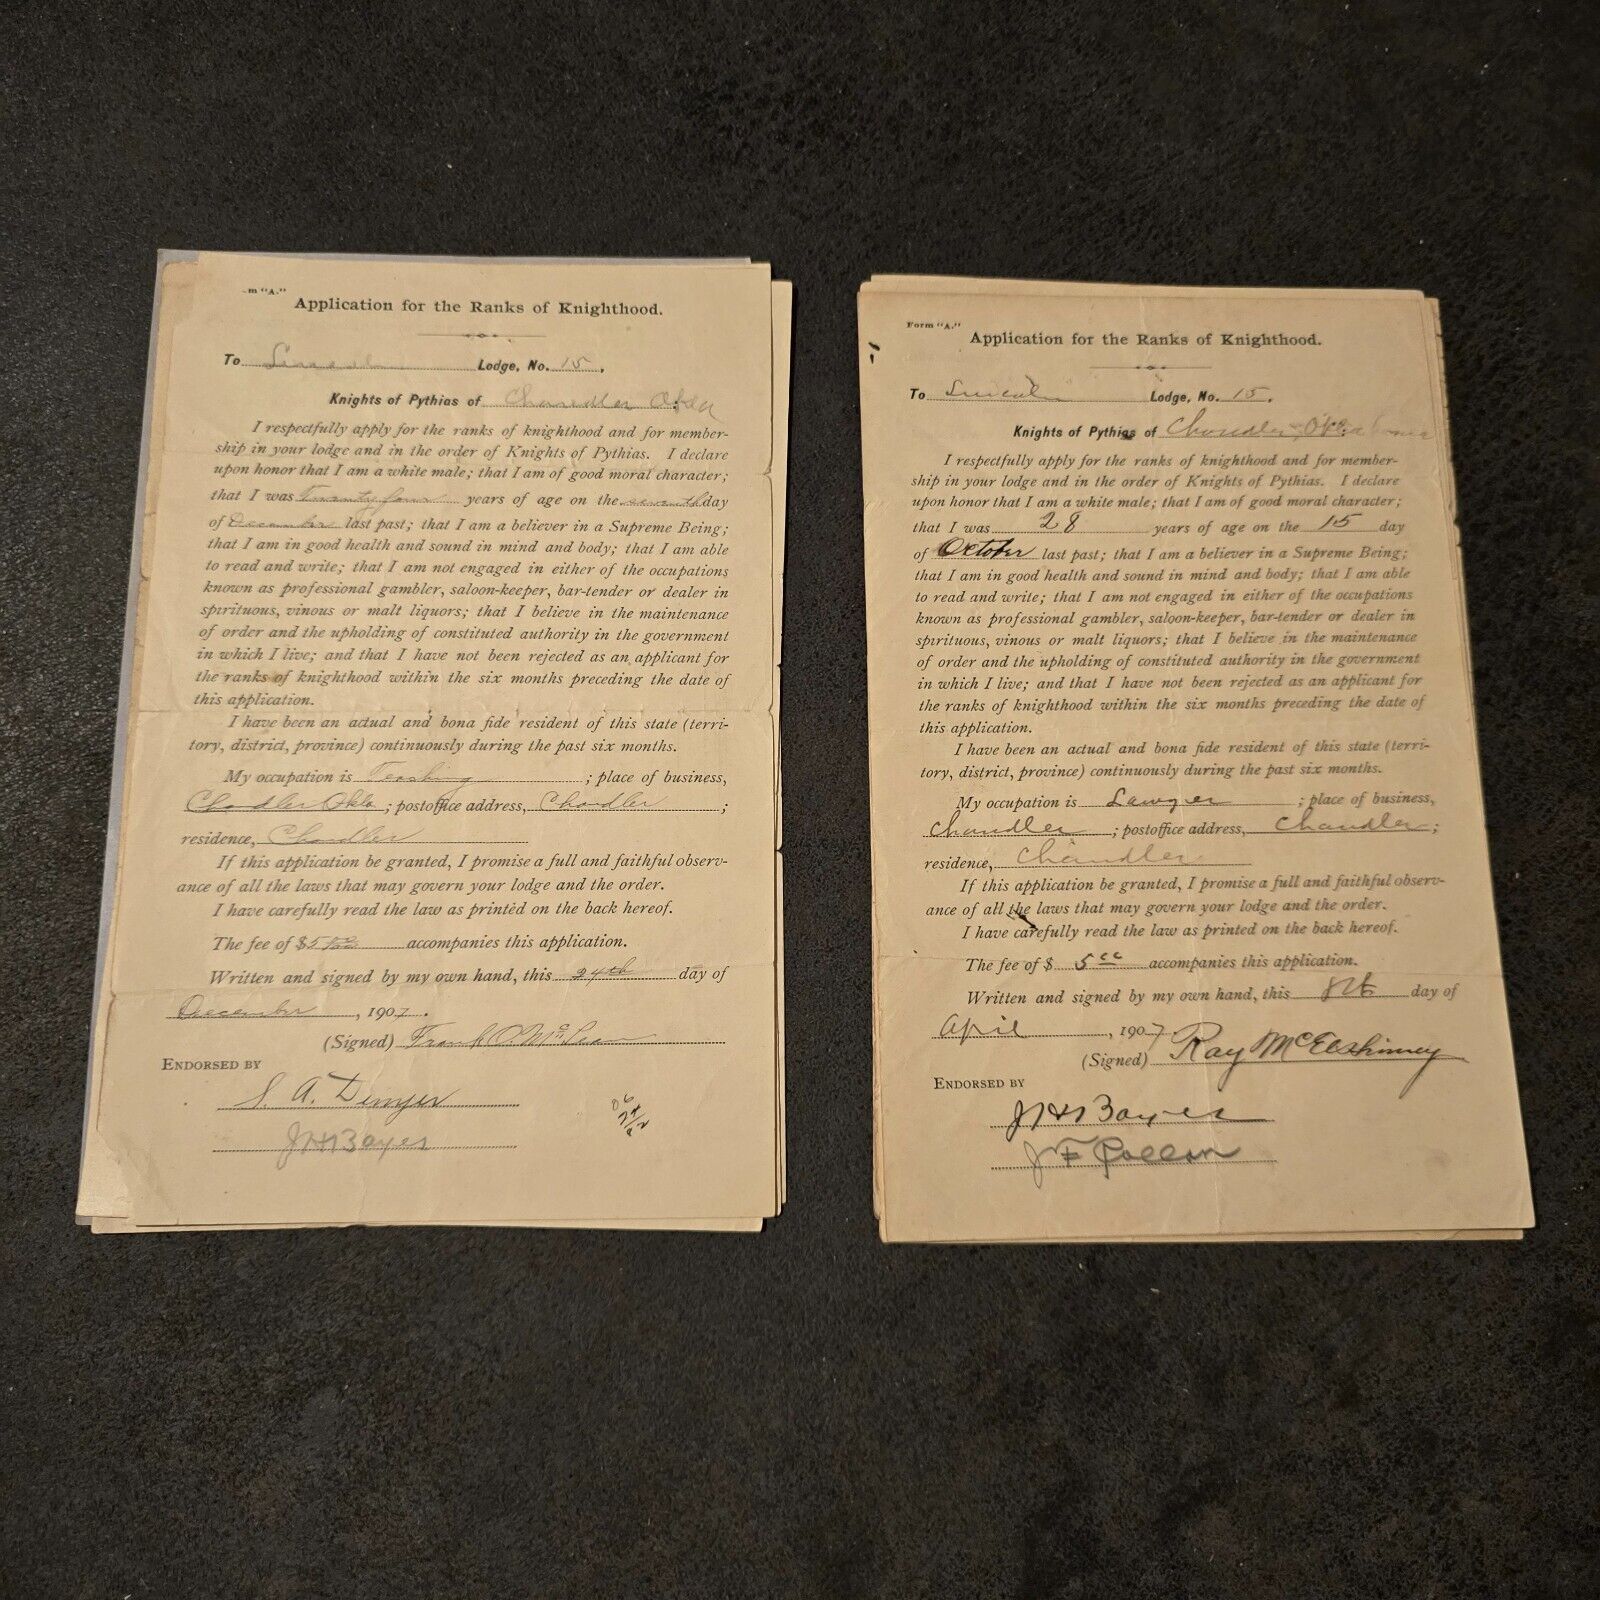 m "A."
Application for the Ranks of Knighthood.
To Lodge, No. 15.
Knights of Pythias of Chandler Okla
I respectfully apply for the ranks of knighthood and for member-
ship in your lodge and in the order of Knights of Pythias. I declare
upon honor that I am a white male; that I am of good moral character;
that I was Twenty four years of age on the seventh day
of December last past; that I am a believer in a Supreme Being;
that I am in good health and sound in mind and body; that I am able
to read and write; that I am not engaged in either of the occupations
known as professional gambler, saloon-keeper, bar-tender or dealer in
spirituous, vinous or malt liquors; that I believe in the maintenance
of order and the upholding of constituted authority in the government
in which I live; and that I have not been rejected as an applicant for
the ranks of knighthood within the six months preceding the date of
this application.
I have been an actual and bona fide resident of this state (terri-
tory, district, province) continuously during the past six months.
My occupation is Teaching ; place of business,
Chandler Okla ; postoffice address, Chandler ;
residence, Chandler
If this application be granted, I promise a full and faithful observ-
ance of all the laws that may govern your lodge and the order.
I have carefully read the law as printed on the back hereof.
The fee of $5 accompanies this application.
Written and signed by my own hand, this 24th day of
December, 1907.
(Signed) Frank O. Mc
ENDORSED BY
S. A.
Bayes
Form "A."
Application for the Ranks of Knighthood.
To Lincoln Lodge, No. 15.
Knights of Pythias of Chandler, Oklahoma
I respectfully apply for the ranks of knighthood and for member-
ship in your lodge and in the order of Knights of Pythias. I declare
upon honor that I am a white male; that I am of good moral character;
that I was 28 years of age on the 15 day
of October last past; that I am a believer in a Supreme Being;
that I am in good health and sound in mind and body; that I am able
to read and write; that I am not engaged in either of the occupations
known as professional gambler, saloon-keeper, bar-tender or dealer in
spirituous, vinous or malt liquors; that I believe in the maintenance
of order and the upholding of constituted authority in the government
in which I live; and that I have not been rejected as an applicant for
the ranks of knighthood within the six months preceding the date of
this application.
I have been an actual and bona fide resident of this state (terri-
tory, district, province) continuously during the past six months.
My occupation is Lawyer ; place of business,
Chandler ; postoffice address, Chandler ;
residence, Chandler
If this application be granted, I promise a full and faithful observ-
ance of all the laws that may govern your lodge and the order.
I have carefully read the law as printed on the back hereof.
The fee of $ 5 accompanies this application.
Written and signed by my own hand, this 8th day of
April, 1907
(Signed) Ray McElhinney
ENDORSED BY
Bayes
J F